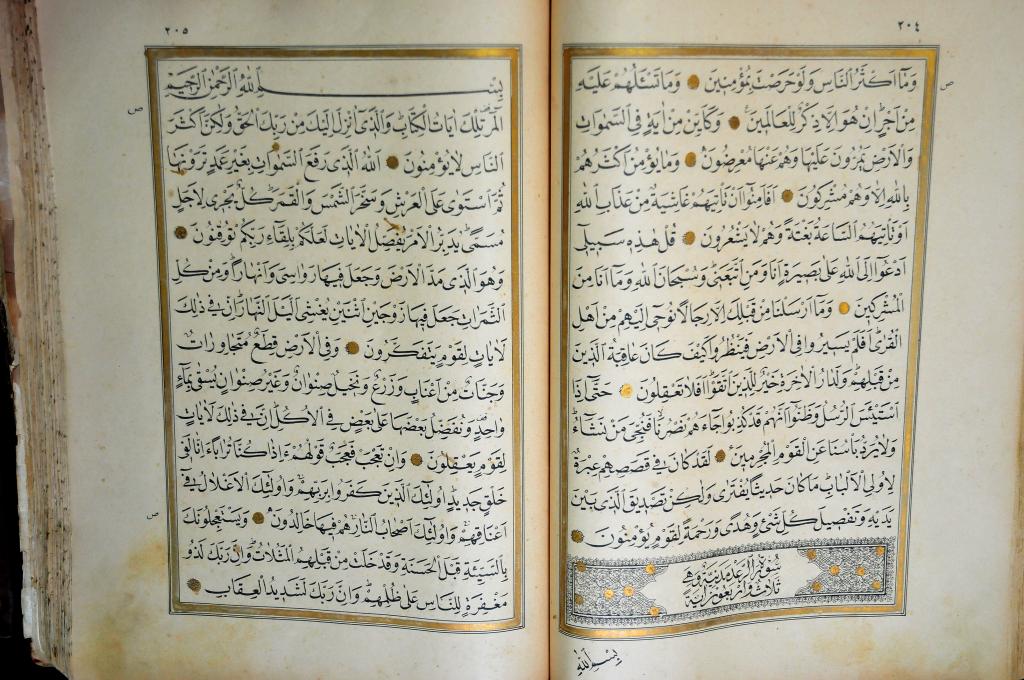 ٢٠٤
وَمَا اَكْثَرُ النَّاسِ وَلَوْ حَرَصْتَ بِمُؤْمِنِينَ وَمَا تَسْئَلُهُمْ عَلَيْهِ
ص
مِنْ اَجْرٍ اِنْ هُوَ اِلَّا ذِكْرٌ لِلْعَالَمِينَ وَكَاَيِّنْ مِنْ اٰيَةٍ فِي السَّمٰوَاتِ
وَالْاَرْضِ يَمُرُّونَ عَلَيْهَا وَهُمْ عَنْهَا مُعْرِضُونَ وَمَا يُؤْمِنُ اَكْثَرُهُمْ
بِاللّٰهِ اِلَّا وَهُمْ مُشْرِكُونَ اَفَاَمِنُوا اَنْ تَاْتِيَهُمْ غَاشِيَةٌ مِنْ عَذَابِ اللّٰهِ
اَوْ تَاْتِيَهُمُ السَّاعَةُ بَغْتَةً وَهُمْ لَا يَشْعُرُونَ قُلْ هٰذِهِ سَبِيلِي
اَدْعُوا اِلَى اللّٰهِ عَلٰى بَصِيرَةٍ اَنَا وَمَنِ اتَّبَعَنِي وَسُبْحَانَ اللّٰهِ وَمَا اَنَا مِنَ
الْمُشْرِكِينَ وَمَا اَرْسَلْنَا مِنْ قَبْلِكَ اِلَّا رِجَالًا نُوحِي اِلَيْهِمْ مِنْ اَهْلِ
الْقُرٰى اَفَلَمْ يَسِيرُوا فِي الْاَرْضِ فَيَنْظُرُوا كَيْفَ كَانَ عَاقِبَةُ الَّذِينَ
مِنْ قَبْلِهِمْ وَلَدَارُ الْاٰخِرَةِ خَيْرٌ لِلَّذِينَ اتَّقَوْا اَفَلَا تَعْقِلُونَ حَتّٰى اِذَا
اسْتَيْئَسَ الرُّسُلُ وَظَنُّوا اَنَّهُمْ قَدْ كُذِبُوا جَاءَهُمْ نَصْرُنَا فَنُجِّيَ مَنْ نَشَاءُ
وَلَا يُرَدُّ بَاْسُنَا عَنِ الْقَوْمِ الْمُجْرِمِينَ لَقَدْ كَانَ فِي قَصَصِهِمْ عِبْرَةٌ
لِاُولِي الْاَلْبَابِ مَا كَانَ حَدِيثًا يُفْتَرٰى وَلٰكِنْ تَصْدِيقَ الَّذِي بَيْنَ
يَدَيْهِ وَتَفْصِيلَ كُلِّ شَيْءٍ وَهُدًى وَرَحْمَةً لِقَوْمٍ يُؤْمِنُونَ
سُورَةُ الرَّعْدِ مَدَنِيَّةٌ وَهِيَ
ثَلَاثٌ وَاَرْبَعُونَ اٰيَةً
بِسْمِ اللّٰهِ
٢٠٥
بِسْمِ اللّٰهِ الرَّحْمٰنِ الرَّحِيمِ
ص
الٓمٓرٰ تِلْكَ اٰيَاتُ الْكِتَابِ وَالَّذِي اُنْزِلَ اِلَيْكَ مِنْ رَبِّكَ الْحَقُّ وَلٰكِنَّ اَكْثَرَ
النَّاسِ لَا يُؤْمِنُونَ اَللّٰهُ الَّذِي رَفَعَ السَّمٰوَاتِ بِغَيْرِ عَمَدٍ تَرَوْنَهَا
ثُمَّ اسْتَوٰى عَلَى الْعَرْشِ وَسَخَّرَ الشَّمْسَ وَالْقَمَرَ كُلٌّ يَجْرِي لِاَجَلٍ
مُسَمًّى يُدَبِّرُ الْاَمْرَ يُفَصِّلُ الْاٰيَاتِ لَعَلَّكُمْ بِلِقَاءِ رَبِّكُمْ تُوقِنُونَ
وَهُوَ الَّذِي مَدَّ الْاَرْضَ وَجَعَلَ فِيهَا رَوَاسِيَ وَاَنْهَارًا وَمِنْ كُلِّ
الثَّمَرَاتِ جَعَلَ فِيهَا زَوْجَيْنِ اثْنَيْنِ يُغْشِي الَّيْلَ النَّهَارَ اِنَّ فِي ذٰلِكَ
لَاٰيَاتٍ لِقَوْمٍ يَتَفَكَّرُونَ وَفِي الْاَرْضِ قِطَعٌ مُتَجَاوِرَاتٌ
وَجَنَّاتٌ مِنْ اَعْنَابٍ وَزَرْعٌ وَنَخِيلٌ صِنْوَانٌ وَغَيْرُ صِنْوَانٍ يُسْقٰى بِمَاءٍ
وَاحِدٍ وَنُفَضِّلُ بَعْضَهَا عَلٰى بَعْضٍ فِي الْاُكُلِ اِنَّ فِي ذٰلِكَ لَاٰيَاتٍ
لِقَوْمٍ يَعْقِلُونَ وَاِنْ تَعْجَبْ فَعَجَبٌ قَوْلُهُمْ ءَاِذَا كُنَّا تُرَابًا ءَاِنَّا لَفِي
خَلْقٍ جَدِيدٍ اُولٰئِكَ الَّذِينَ كَفَرُوا بِرَبِّهِمْ وَاُولٰئِكَ الْاَغْلَالُ فِي
ص
اَعْنَاقِهِمْ وَاُولٰئِكَ اَصْحَابُ النَّارِ هُمْ فِيهَا خَالِدُونَ وَيَسْتَعْجِلُونَكَ
بِالسَّيِّئَةِ قَبْلَ الْحَسَنَةِ وَقَدْ خَلَتْ مِنْ قَبْلِهِمُ الْمَثُلَاتُ وَاِنَّ رَبَّكَ لَذُو
مَغْفِرَةٍ لِلنَّاسِ عَلٰى ظُلْمِهِمْ وَاِنَّ رَبَّكَ لَشَدِيدُ الْعِقَابِ